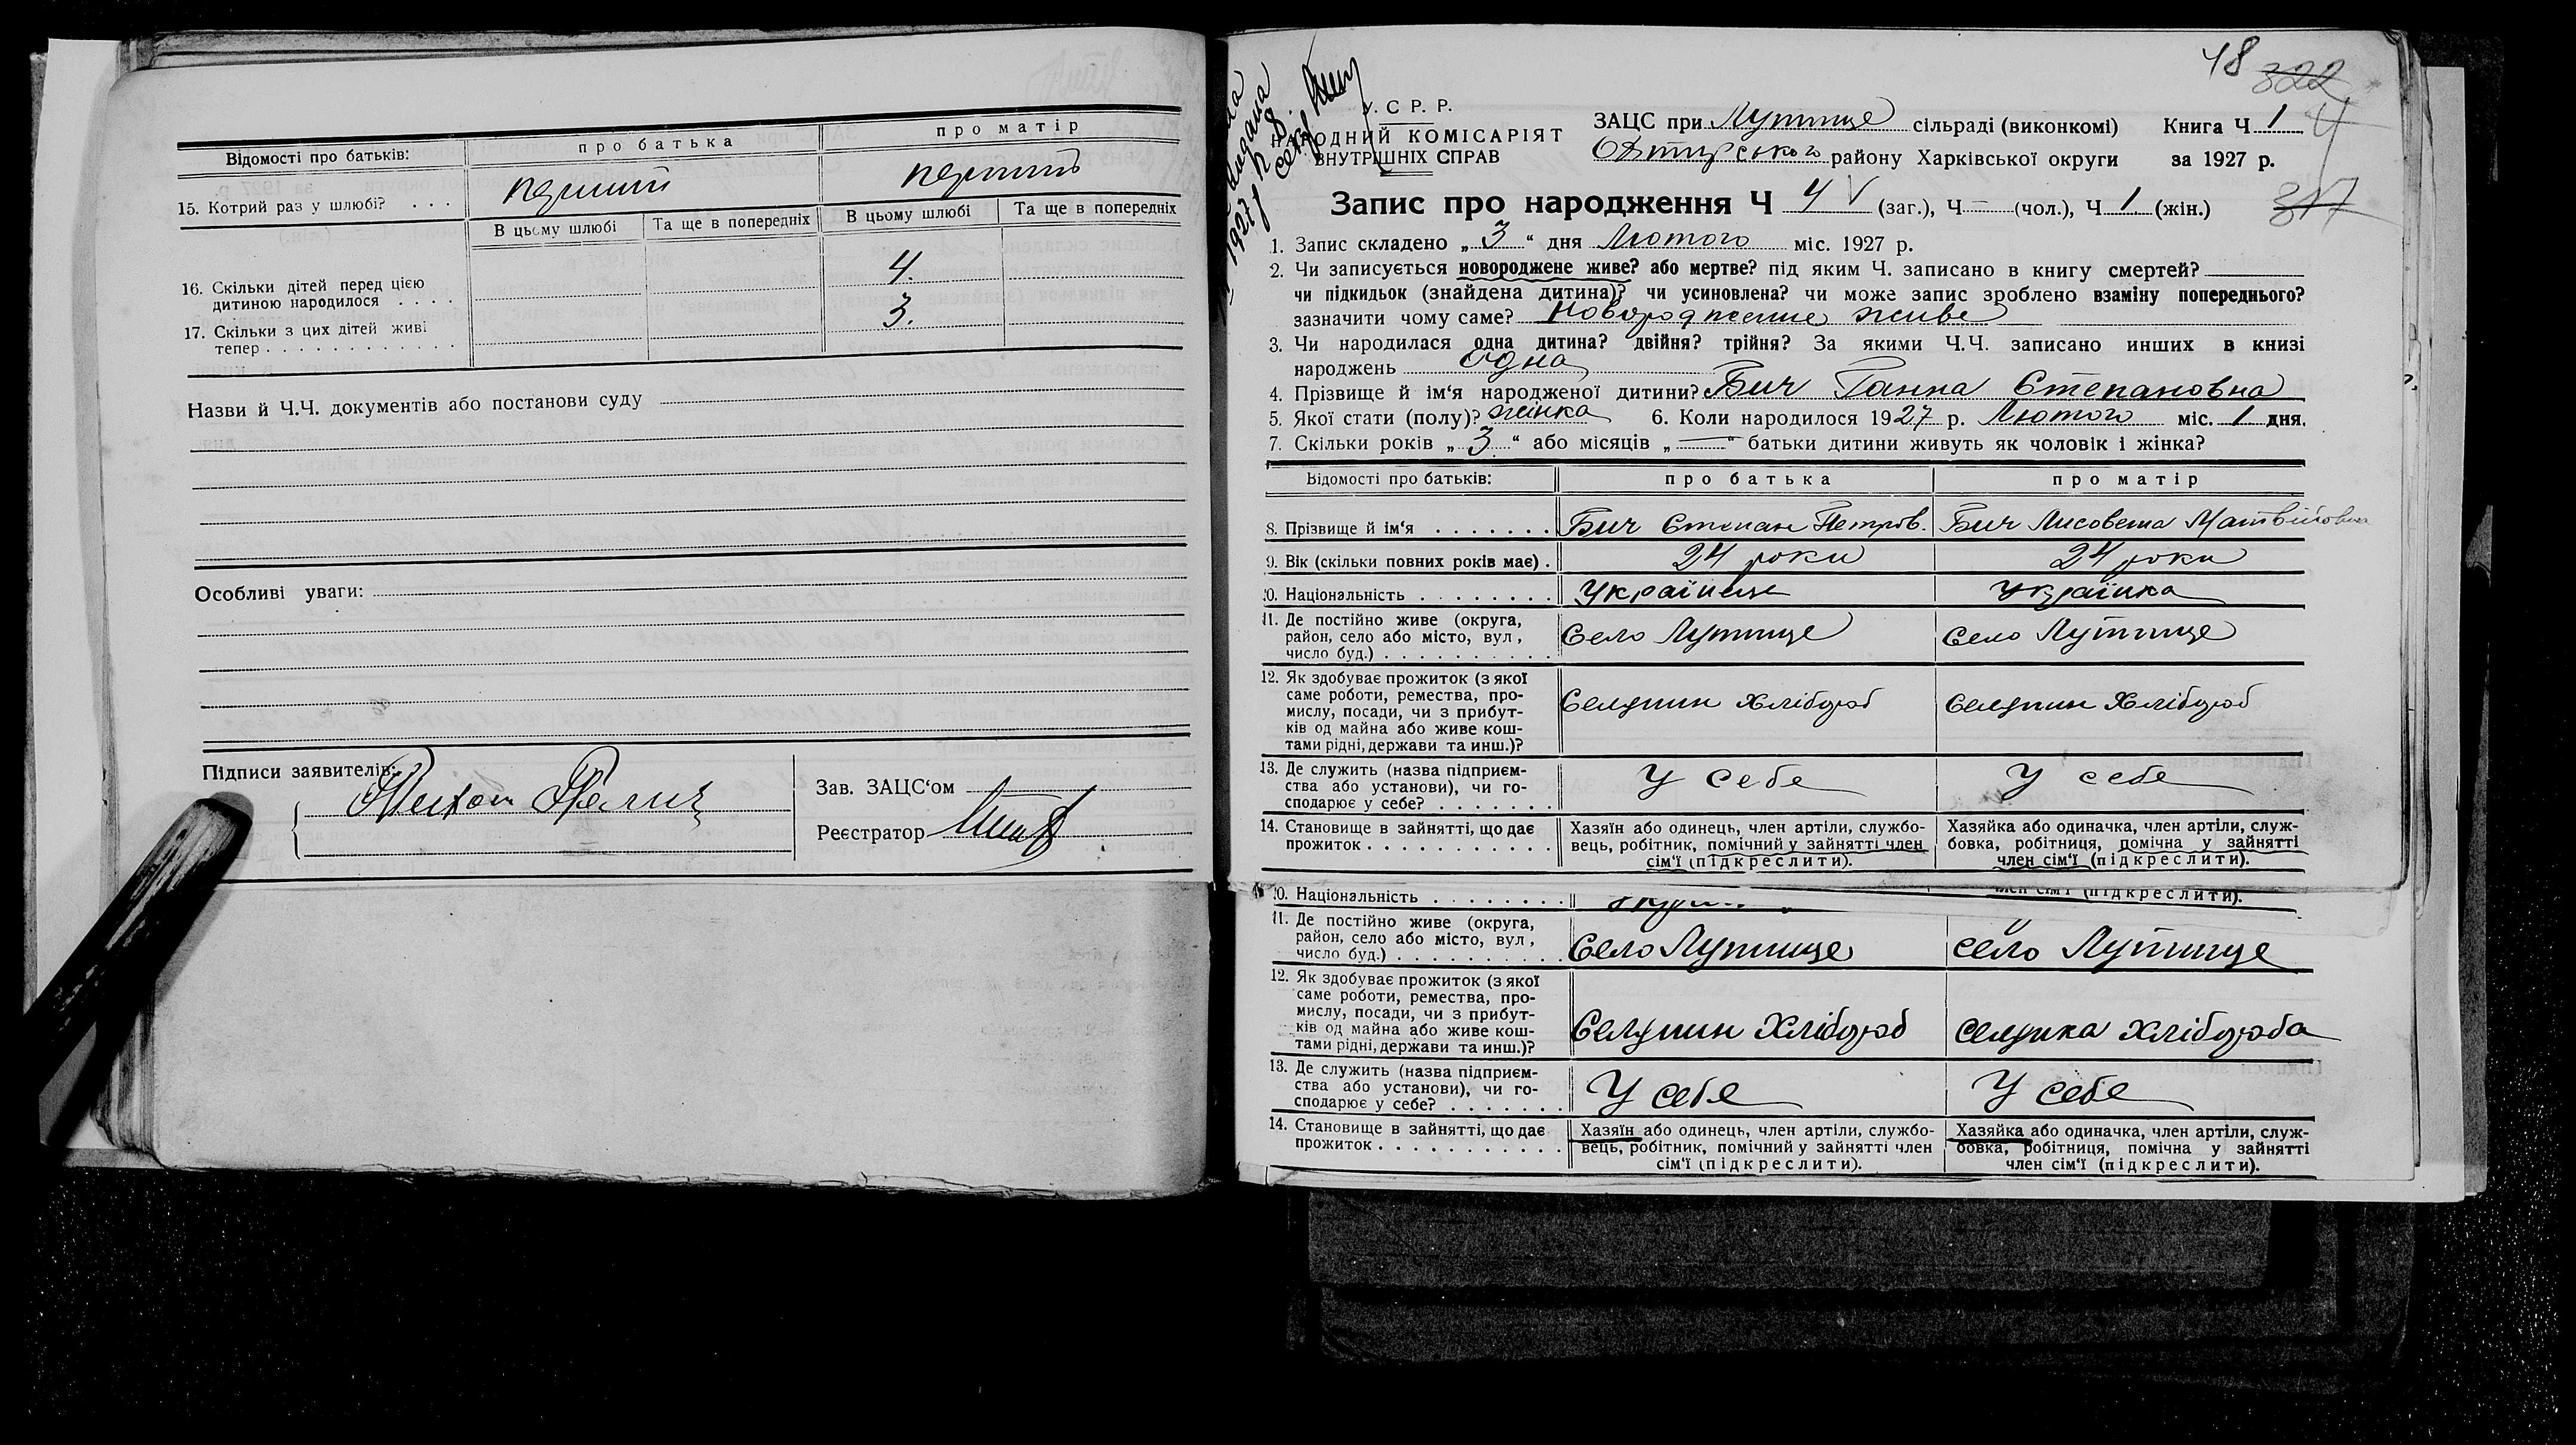 Відомості про батьків:
про батька
про матір
15. Котрий раз у шлюбі? . . .
перший
перший
В цьому шлюбі
Та ще в попередніх
В цьому шлюбі
Та ще в попередніх
16. Скільки дітей перед цією
дитиною народилося . . . .
4.
17. Скільки з цих дітей живі
тепер . . . . . . . . . . . .
3.
Назви й Ч.Ч. документів або постанови суду
Особливі уваги:
Підписи заявителів:
Зав. ЗАЦС‘ом
Реєстратор
48 322
У. С Р. Р.
НАРОДНИЙ КОМІСАРІЯТ
ВНУТРІШНІХ СПРАВ
ЗАЦС при Лутище сільраді (виконкомі) Книга Ч 1
Охтирського району Харківської округи за 1927 р.
317
Запис про народження Ч 4 (заг.), Ч — (чол.), Ч 1. (жін.)
1. Запис складено „ 3 “ дня Лютого міс. 1927 р.
2. Чи записується новороджене живе? або мертве? під яким Ч. записано в книгу смертей?
чи підкидьок (знайдена дитина)? чи усиновлена? чи може запис зроблено взаміну попереднього?
зазначити чому саме? Новородженне живе
3. Чи народилася одна дитина? двійня? трійня? За якими Ч.Ч. записано инших в книзі
народжень одна
4. Прізвище й ім‘я народженої дитини? Бич Ганна Степановна
5. Якої стати (полу)? жінка 6. Коли народилося 1927 р. Лютого міс. 1 дня.
7. Скільки років „ 3 “ або місяців „ — “ батьки дитини живуть як чоловік і жінка?
Відомості про батьків:
про батька
про матір
8. Прізвище й ім‘я . . . . . . .
Бич Степан Петров.
Бич Лисовета Матвійовна
9. Вік (скільки повних років має) .
24 роки
24 роки
0. Національність . . . . . . . .
Українець
Українка
11. Де постійно живе (округа,
район, село або місто, вул,
число буд.) . . . . . . . . . .
Село Лутище
Село Лутище
12. Як здобуває прожиток (з якої
саме роботи, ремества, про-
мислу, посади, чи з прибут-
ків од майна або живе кош-
тами рідні, держави та инш.)?
Селянин Хлібороб
Селянин Хлібороб
13. Де служить (назва підприєм-
ства або установи), чи го-
сподарює у себе? . . . . . . .
У себе
У себе
14. Становище в зайнятті, що дає
прожиток . . . . . . . . . . .
Хазяїн або одинець, член артіли, службо-
вець, робітник, помічний у зайнятті член
сім‘ї (підкреслити).
Хазяйка або одиначка, член артіли, служ-
бовка, робітниця, помічна у зайнятті
член сім‘ї (підкреслити).
0. Національність . . . . . . . .
член сім‘ї (підкреслити).
11. Де постійно живе (округа,
район, село або місто, вул,
число буд.) . . . . . . . . . .
Село Лутище
село Лутище
12. Як здобуває прожиток (з якої
саме роботи, ремества, про-
мислу, посади, чи з прибут-
ків од майна або живе кош-
тами рідні, держави та инш.)?
Селянин Хлібороб
Селянка Хлібороба
13. Де служить (назва підприєм-
ства або установи), чи го-
сподарює у себе? . . . . . . .
У себе
У себе
14. Становище в зайнятті, що дає
прожиток . . . . . . . . . . .
Хазяїн або одинець, член артіли, службо-
вець, робітник, помічний у зайнятті член
сім‘ї (підкреслити).
Хазяйка або одиначка, член артіли, служ-
бовка, робітниця, помічна у зайнятті
член сім‘ї (підкреслити).